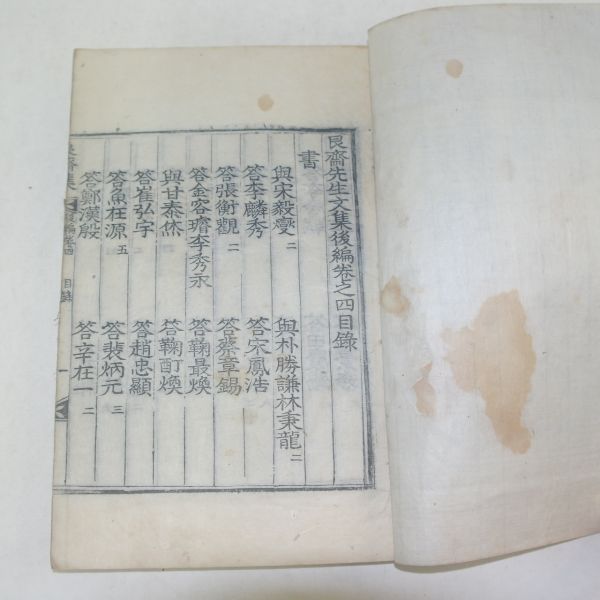 艮齋先生文集後編卷之四目錄
書
與宋毅燮 二 與朴勝謙林秉龍 二
答李麟秀 答宋鳳浩
答張衡觀 二 答蔡章錫
答金容璿李秀永 答鞠最煥
與甘泰休 與鞠酊煥
答崔弘宇 答趙忠顯
答魚在源 五 答裴炳元 三
答鄭漢殷 答辛在一 二
目錄 一